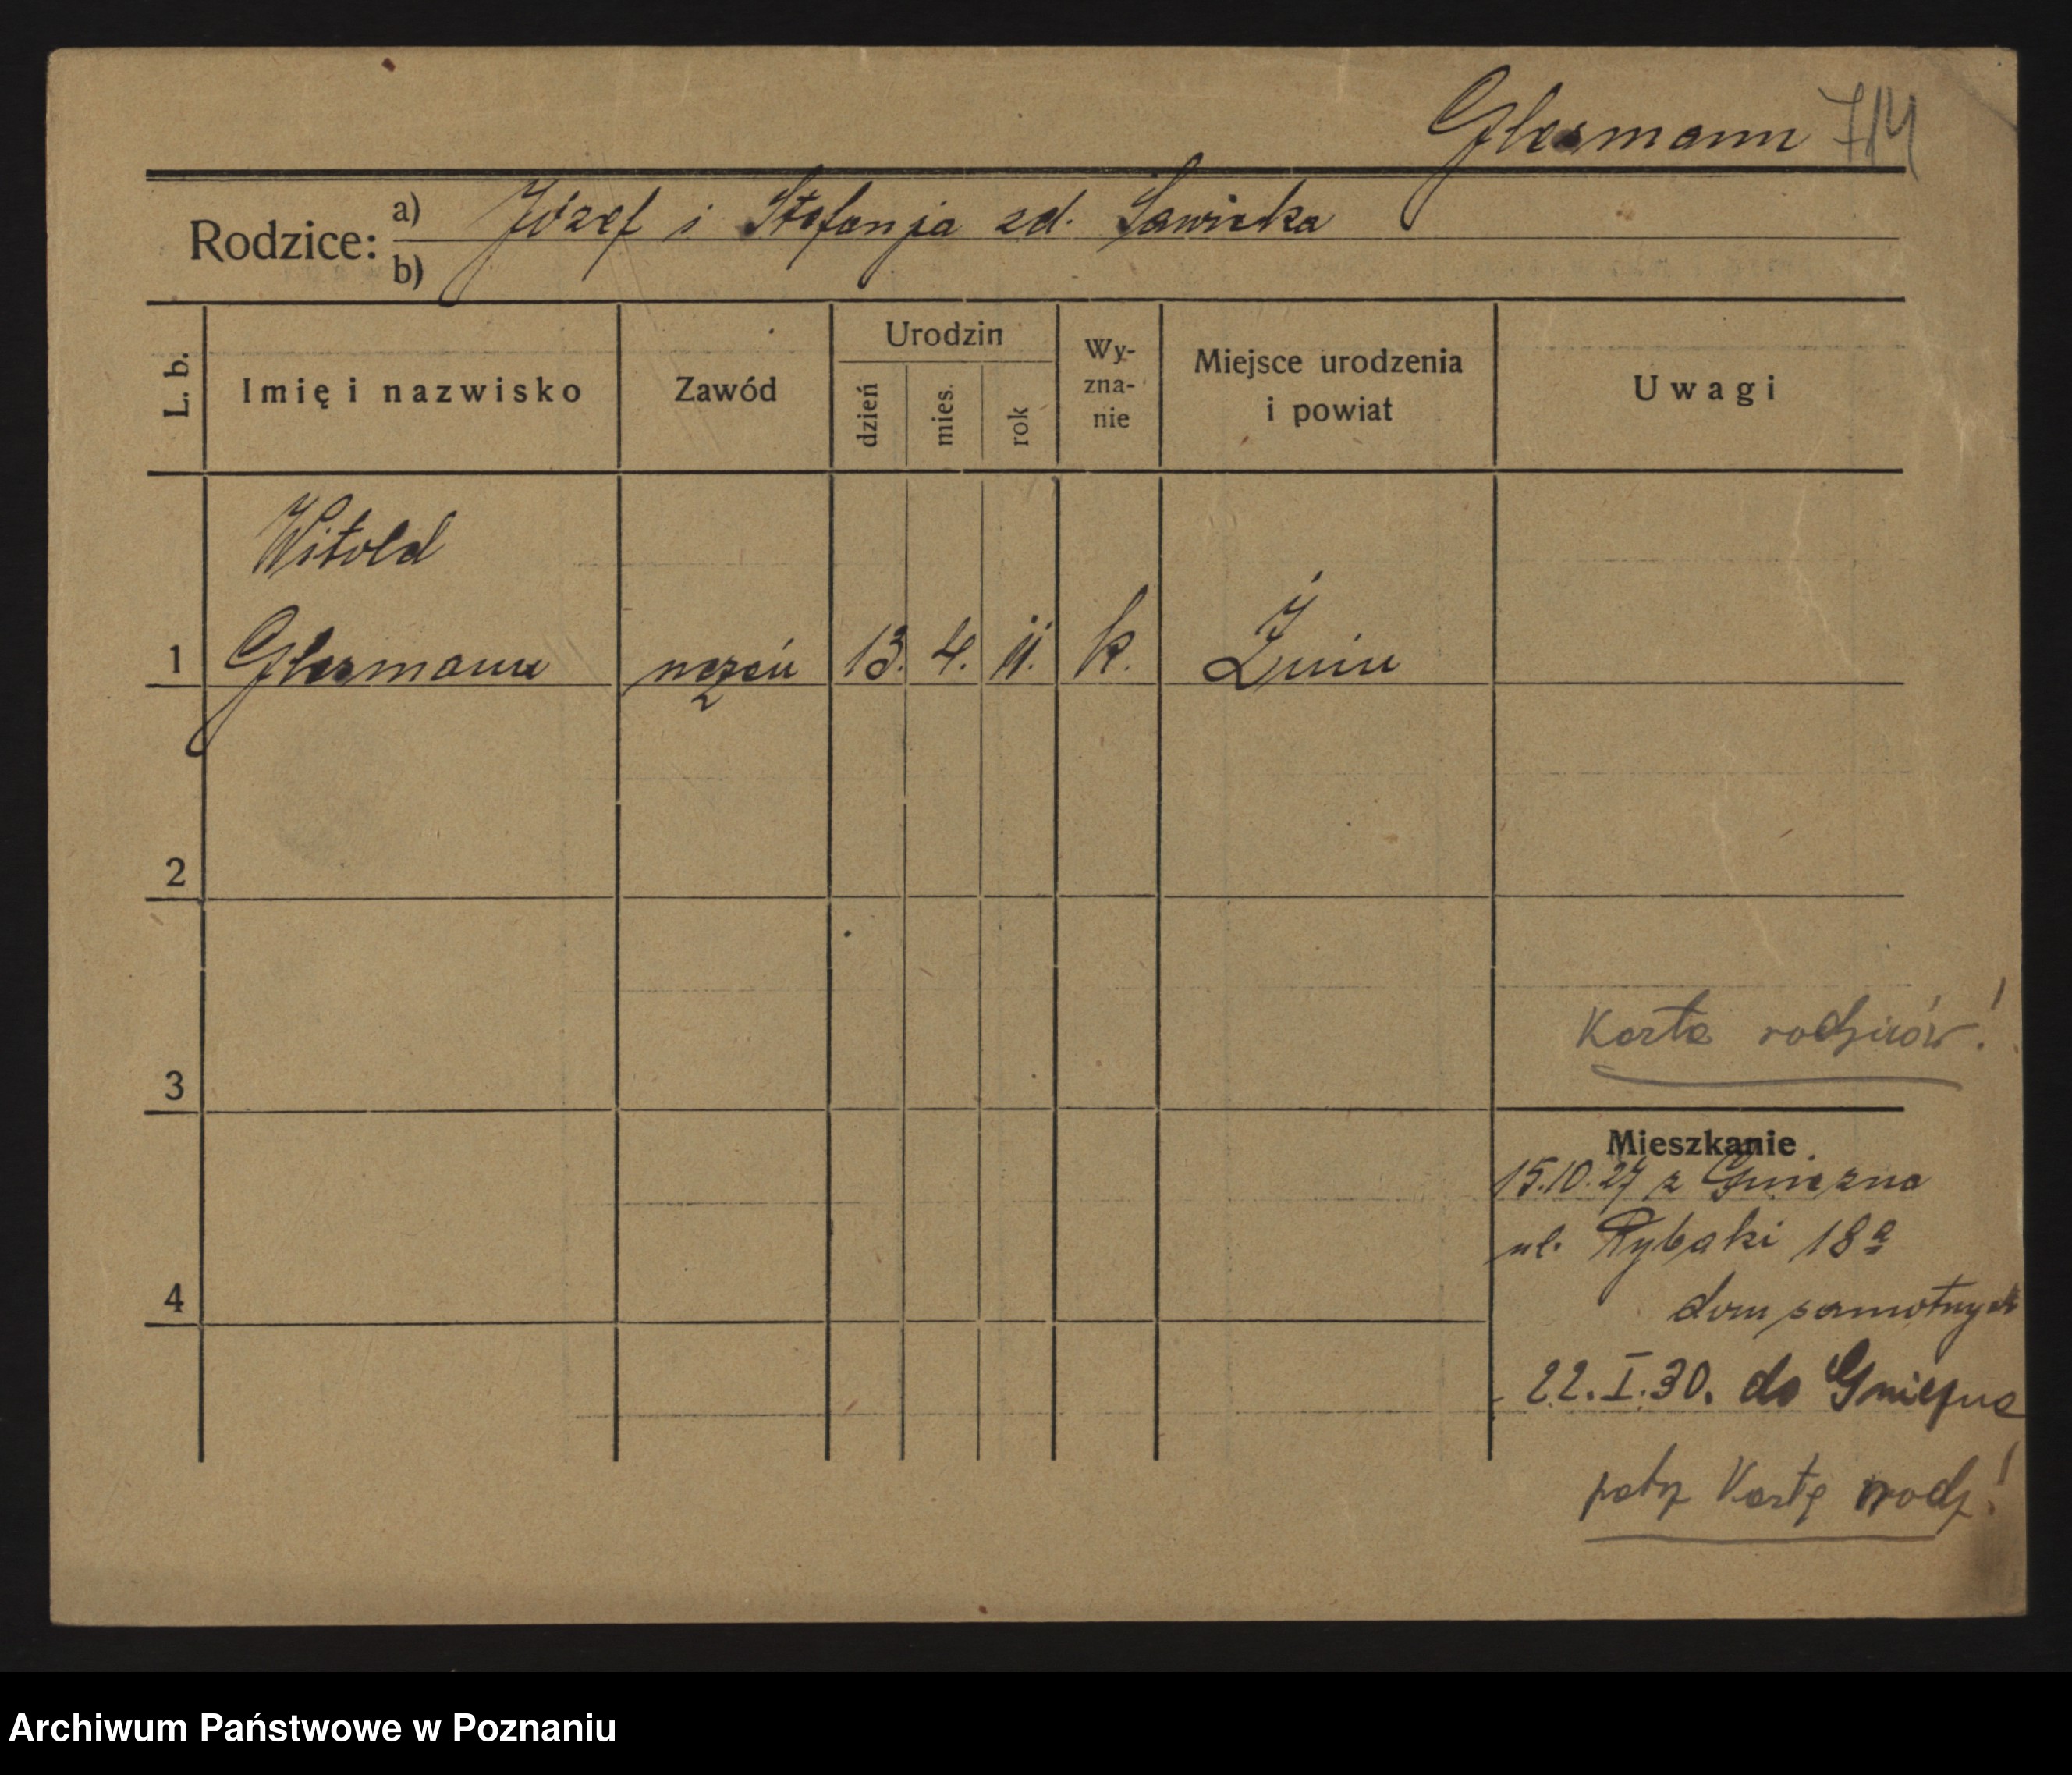 Glesmann 7/4
Rodzice: a) Józef i Stefanja zd. Sawicka
b)
L. b.
Imię i nazwisko
Zawód
Urodzin
dzień
mies.
rok
Wy-
zna-
nie
Miejsce urodzenia
i powiat
Uwagi
Witold
1 Glesmann uczeń 13. 4. 11. k. Żnin
2
3
Karta rodziców!
Mieszkanie
15.10.27 z Gniezna
ul. Rybaki 18a
4
dom samotnych
22.I.30. do Gniezna
patrz Kartę rodz!
Archiwum Państwowe w Poznaniu